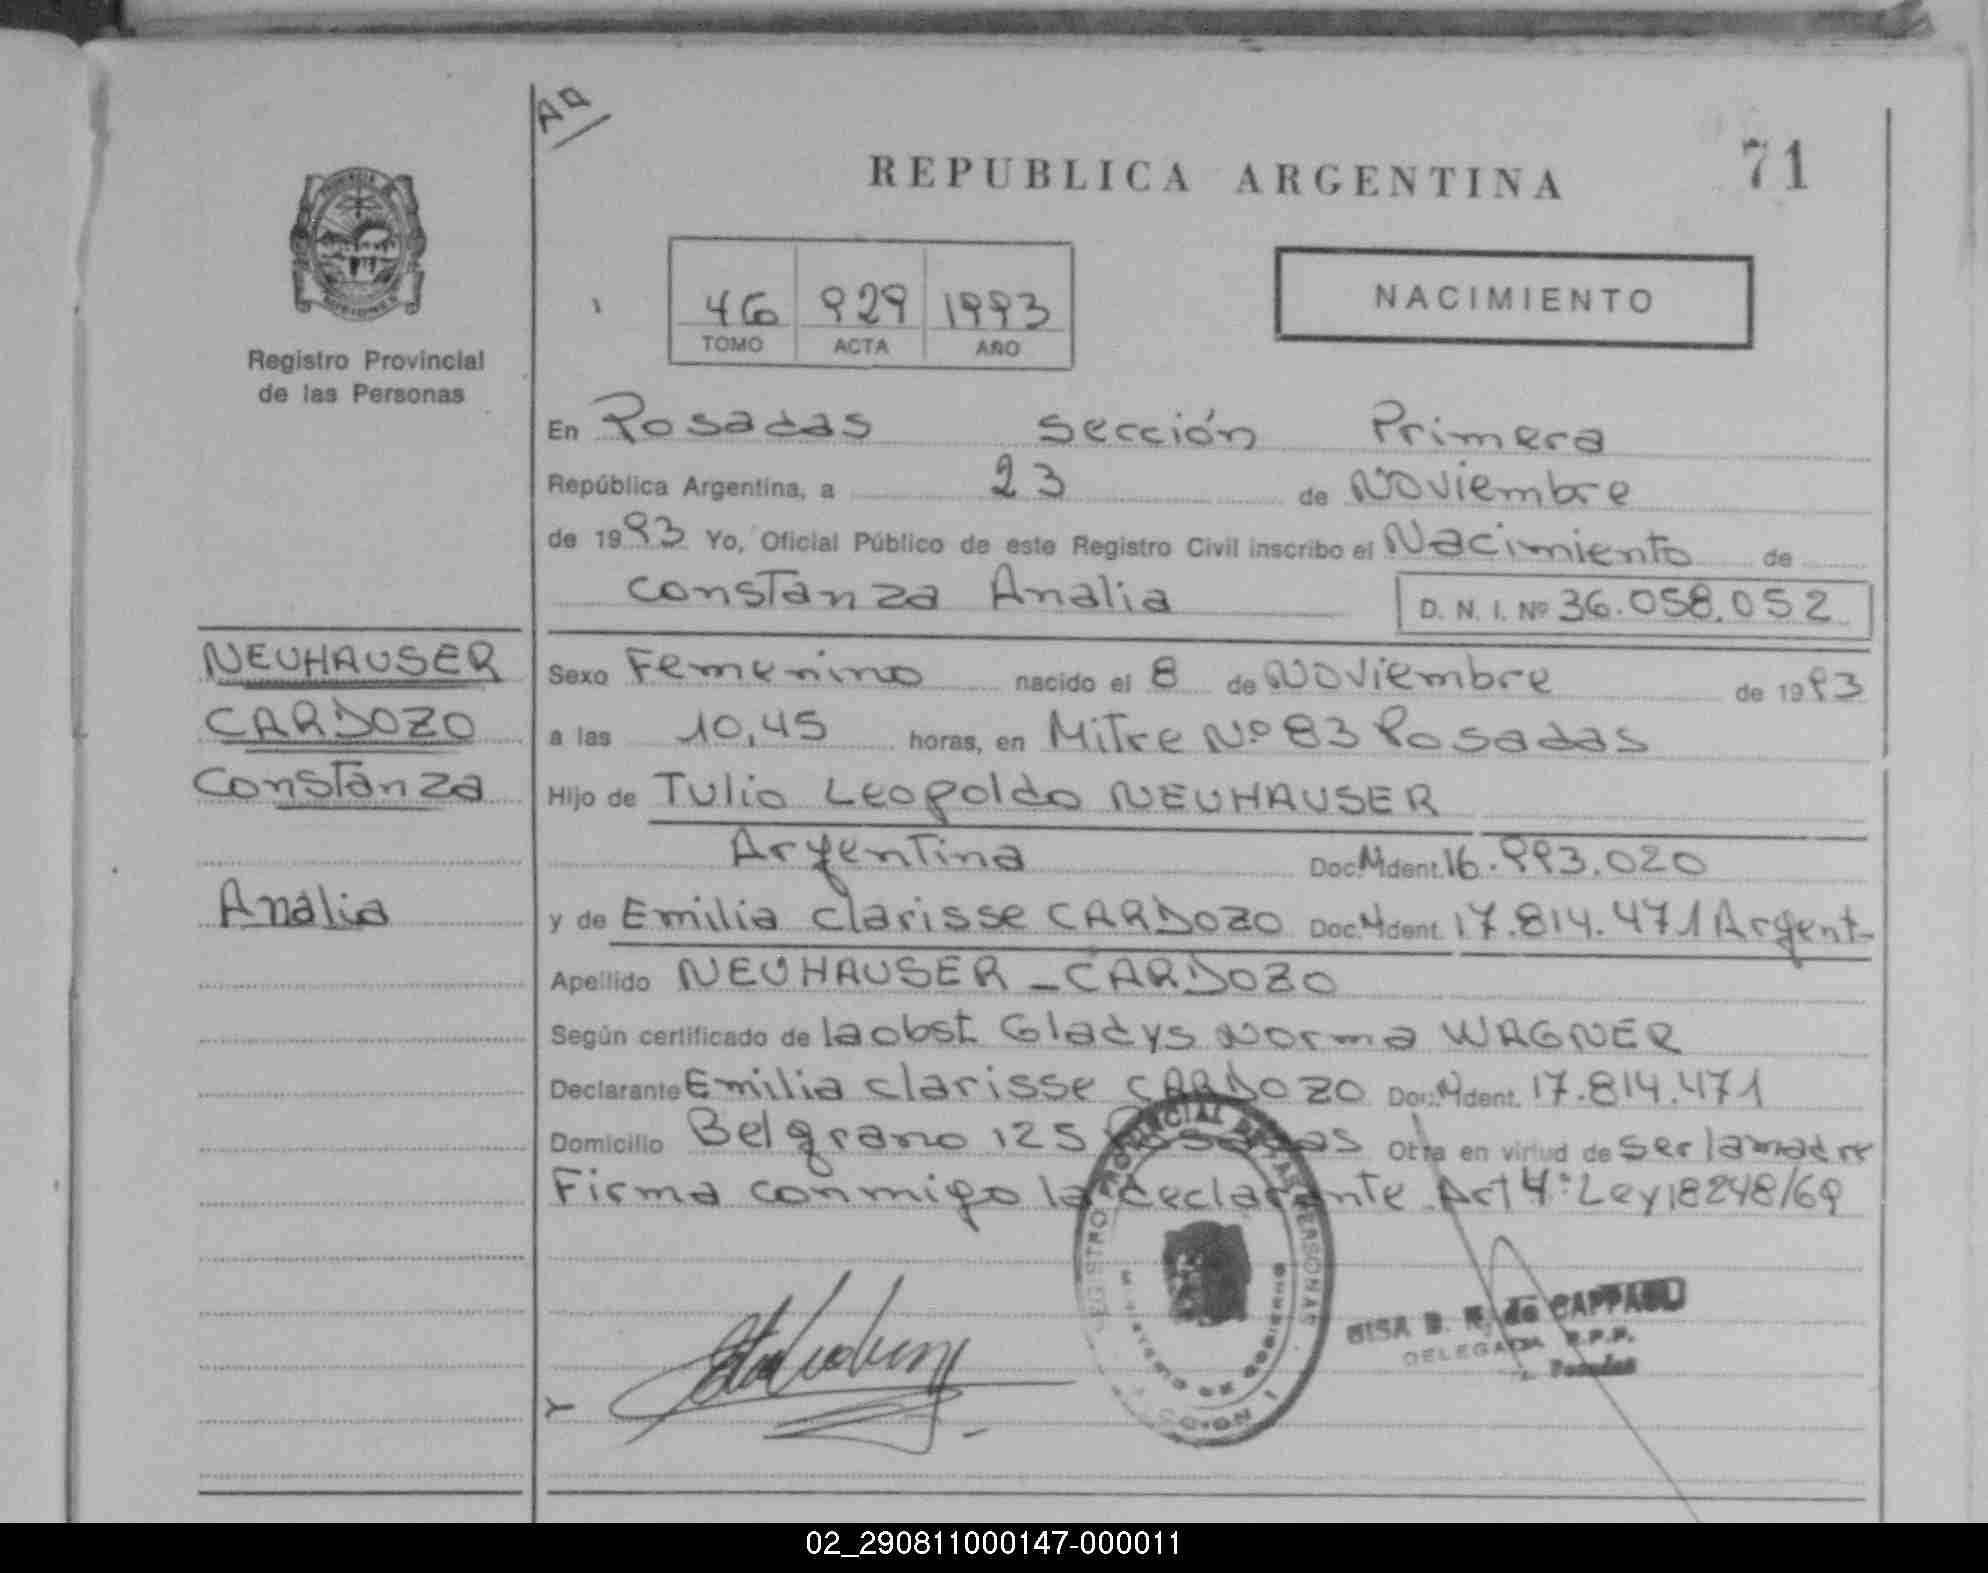 Aa
REPUBLICA ARGENTINA
71
Registro Provincial
de las Personas
46 929 1993
TOMO ACTA AÑO
NACIMIENTO
En Posadas sección Primera
República Argentina, a 23 de Noviembre
de 1993 Yo, Oficial Público de este Registro Civil inscribo el Nacimiento de
constanza Analia D. N. I. Nº 36.058.052
NEUHAUSER
CARDOZO
Constanza
Analia
Sexo Femenino nacido el 8 de Noviembre de 1993
a las 10,45 horas, en Mitre Nº 83 Posadas
Hijo de Tulio Leopoldo NEUHAUSER
Argentina Doc. Ident. 16.993.020
y de Emilia Clarisse CARDOZO Doc. Ident. 17.814.471 Argent-
Apellido NEUHAUSER - CARDOZO
Según certificado de la obst. Gladys Norma WAGNER
Declarante Emilia Clarisse CARDOZO Doc. Ident. 17.814.471
Domicilio Belgrano 125 Posadas Otra en virtud de ser la madre
Firma conmigo la declarante Art 4º Ley 18248/69
REGISTRO PROVINCIAL DE LAS PERSONAS
DE GOBIERNO
DELEGADA R.P.P.
Posadas
02_290811000147-000011